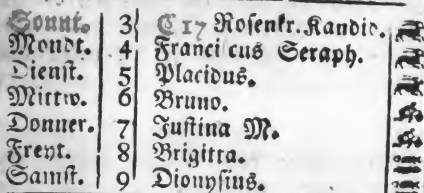 Sonnt. 3 C 17 Rosenkr. Kandid.
Mondt. 4 Franciscus Seraph.
Dienst. 5 Placidus.
Mittw. 6 Bruno.
Donner. 7 Justina M.
Freyt. 8 Brigitta.
Samst. 9 Dionysius.